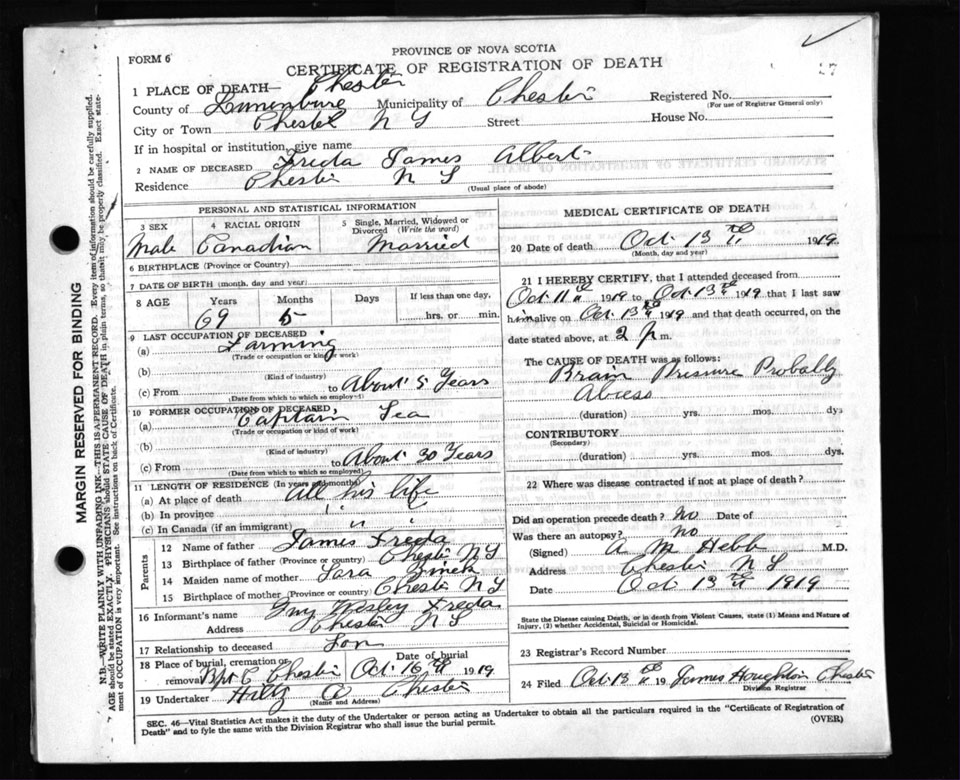 PROVINCE OF NOVA SCOTIA
FORM 6
CERTIFICATE OF REGISTRATION OF DEATH
1 PLACE OF DEATH— Chester
County of Lunenburg Municipality of Chester Registered No.
(For use of Registrar General only)
City or Town Chester N S Street House No.
If in hospital or institution, give name
2 NAME OF DECEASED Freda James Albert
Residence Chester N S (Usual place of abode)
PERSONAL AND STATISTICAL INFORMATION
3 SEX 4 RACIAL ORIGIN 5 Single, Married, Widowed or Divorced (Write the word)
Male Canadian Married
6 BIRTHPLACE (Province or Country)
7 DATE OF BIRTH (month, day and year)
8 AGE Years Months Days If less than one day,
69 5 hrs. or min.
9 LAST OCCUPATION OF DECEASED
(a) Farming
(Trade or occupation or kind of work)
(b)
(Kind of industry)
(c) From to About 5 Years
(Date from which to which so employed)
10 FORMER OCCUPATION OF DECEASED,
(a) Captain Sea
(Trade or occupation or kind of work)
(b)
(Kind of industry)
(c) From to About 30 Years
(Date from which to which so employed)
11 LENGTH OF RESIDENCE (In years and months)
(a) At place of death All his life
(b) In province " "
(c) In Canada (if an immigrant) " "
Parents
12 Name of father James Freda
13 Birthplace of father (Province or country) Chester N S
14 Maiden name of mother Sara
15 Birthplace of mother (Province or country) Chester N S
16 Informant's name Guy Wesley Freda
Address Chester N S
17 Relationship to deceased Son
18 Place of burial, cremation or removal Bpt C Chester Date of burial Oct 16 th 1919
19 Undertaker Hiltz A Chester
(Name and Address)
MEDICAL CERTIFICATE OF DEATH
20 Date of death Oct 13 th 1919
(Month, day and year)
21 I HEREBY CERTIFY, that I attended deceased from
Oct 11 th 1919 to Oct 13 th 1919 that I last saw
him alive on Oct 13 th 1919 and that death occurred, on the
date stated above, at 2 p m.
The CAUSE OF DEATH was as follows:
Brain Pressure Probably
Abcess
(duration) yrs. mos. dys
CONTRIBUTORY
(Secondary)
(duration) yrs. mos. dys.
22 Where was disease contracted if not at place of death?
Did an operation precede death? No Date of
Was there an autopsy? No
(Signed) A M Hebb M.D.
Address Chester N S
Date Oct 13 th 1919
State the Disease causing Death, or in death from Violent Causes, state (1) Means and Nature of
Injury, (2) whether Accidental, Suicidal or Homicidal.
23 Registrar's Record Number
24 Filed Oct 13 th 19 James Houghton Chester
Division Registrar
SEC. 46—Vital Statistics Act makes it the duty of the Undertaker or person acting as Undertaker to obtain all the particulars required in the "Certificate of Registration of
Death" and to fyle the same with the Division Registrar who shall issue the burial permit. (OVER)
MARGIN RESERVED FOR BINDING
N.B.—WRITE PLAINLY WITH UNFADING INK—THIS IS A PERMANENT RECORD. Every item of information should be carefully supplied.
AGE should be stated EXACTLY. PHYSICIANS should STATE CAUSE OF DEATH in plain terms, so that it may be properly classified. Exact state-
ment of OCCUPATION is very important. See instructions on back of Certificate.